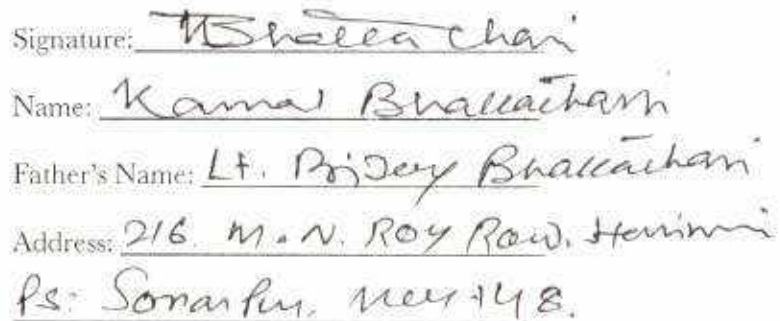 Signature: Bhattachari
Name: Kamal Bhattacharji
Father's Name: Lt. Bijoy Bhattachari
Address: 216. M.N. ROY Row.
Ps: Sonarpur, 148.